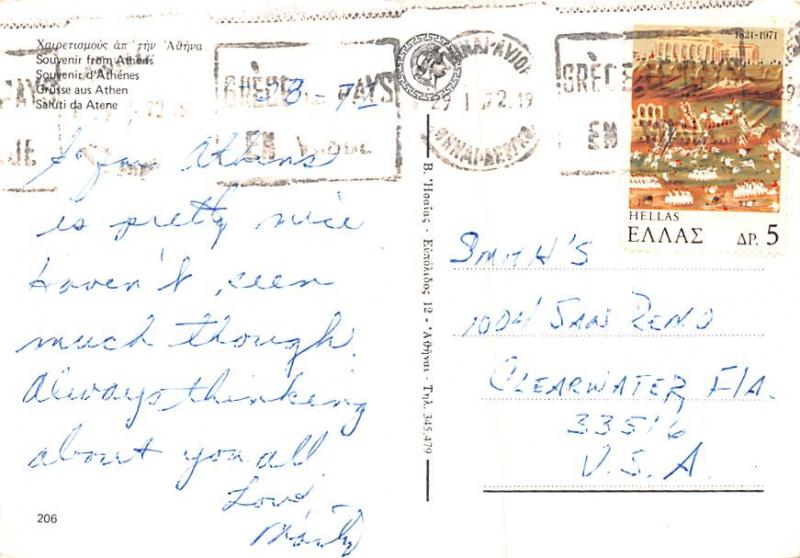 Χαιρετισμούς ἀπ' τήν Ἀθήνα
Souvenir from Athens
Souvenir d'Athénes
Grüsse aus Athen
Saluti da Atene
So far Athens
is pretty nice
haven't seen
much though.
Always thinking
about you all
Love,
Marty
206
Β. Ἡσαΐας - Εὐπόλιδος 12 - Ἀθῆναι - Τηλ. 345.479
GRÈCE PAYS
EN
29 I 72.19
GRÈCE
EN
1821-1971
HELLAS
ΕΛΛΑΣ ΔΡ. 5
SMITH'S
1004 SAN REMO
CLEARWATER, FlA.
33516
U.S.A.